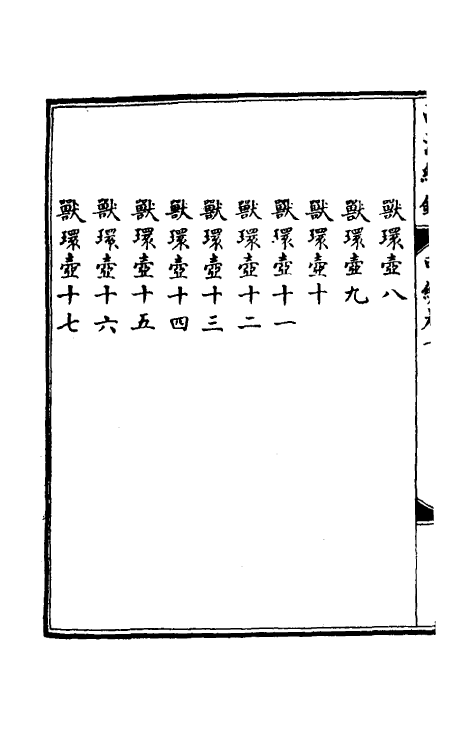 獸環壺八
獸環壺九
獸環壺十
獸環壺十一
獸環壺十二
獸環壺十三
獸環壺十四
獸環壺十五
獸環壺十六
獸環壺十七